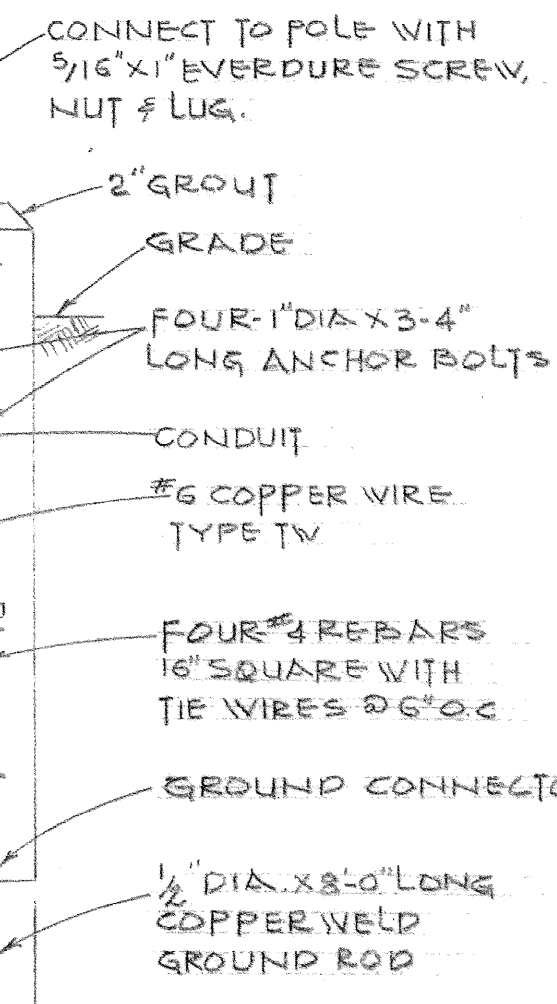 CONNECT TO POLE WITH
5/16"X1" EVERDURE SCREW,
NUT & LUG.
2" GROUT
GRADE
FOUR-1"DIA X 3-4"
LONG ANCHOR BOLTS
CONDUIT
#6 COPPER WIRE
TYPE TW
FOUR-#4 REBARS
16" SQUARE WITH
TIE WIRES @ 6" O.C
GROUND CONNECTO
1/2" DIA. X 8'-0" LONG
COPPERWELD
GROUND ROD